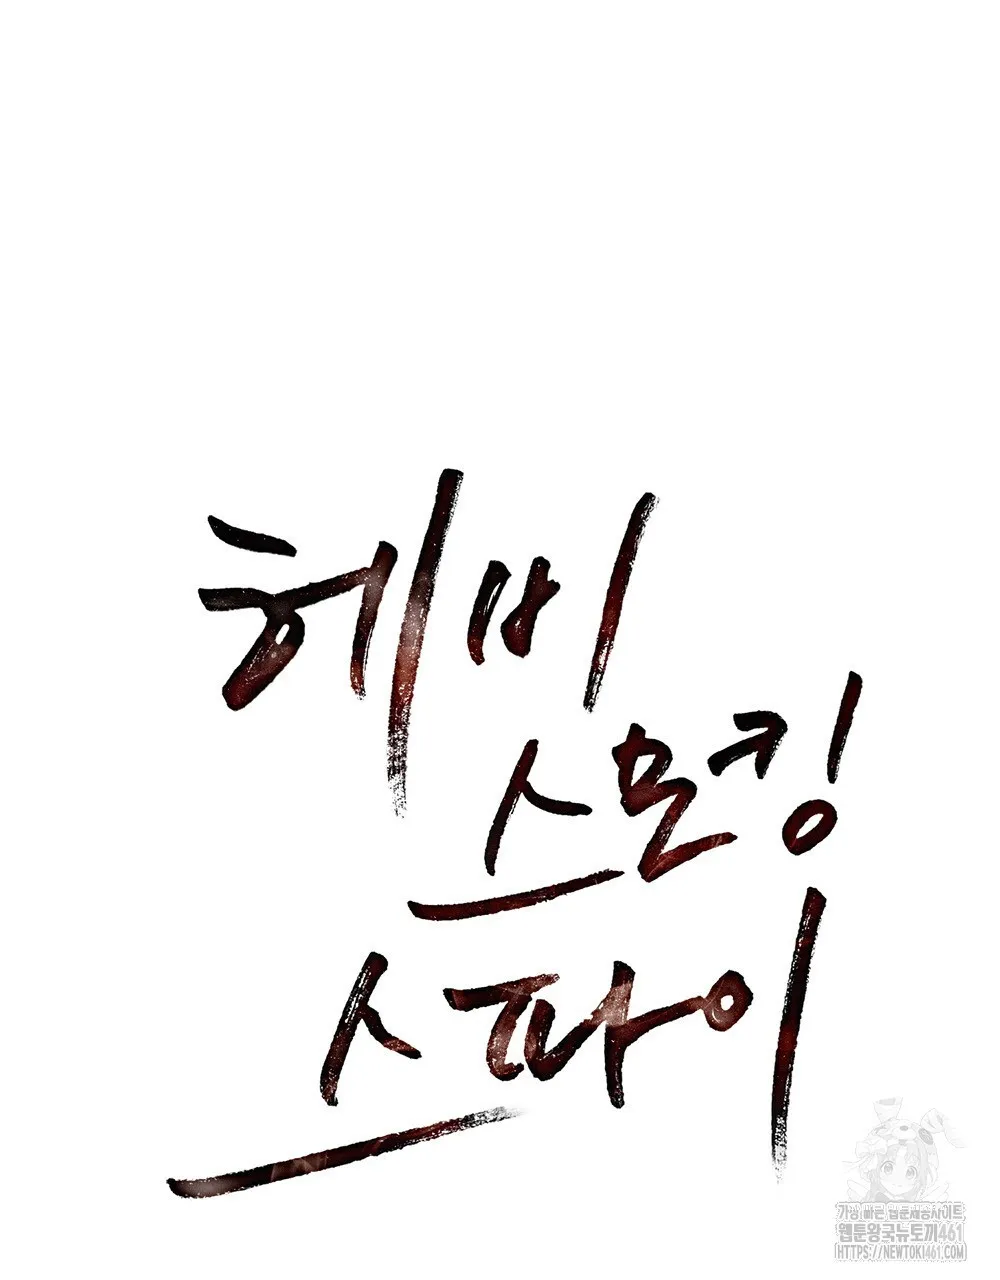 헤비
스모킹
스파이
가장 빠른 웹툰제공사이트
웹툰왕국뉴토끼461
HTTPS://NEWTOKI461.COM